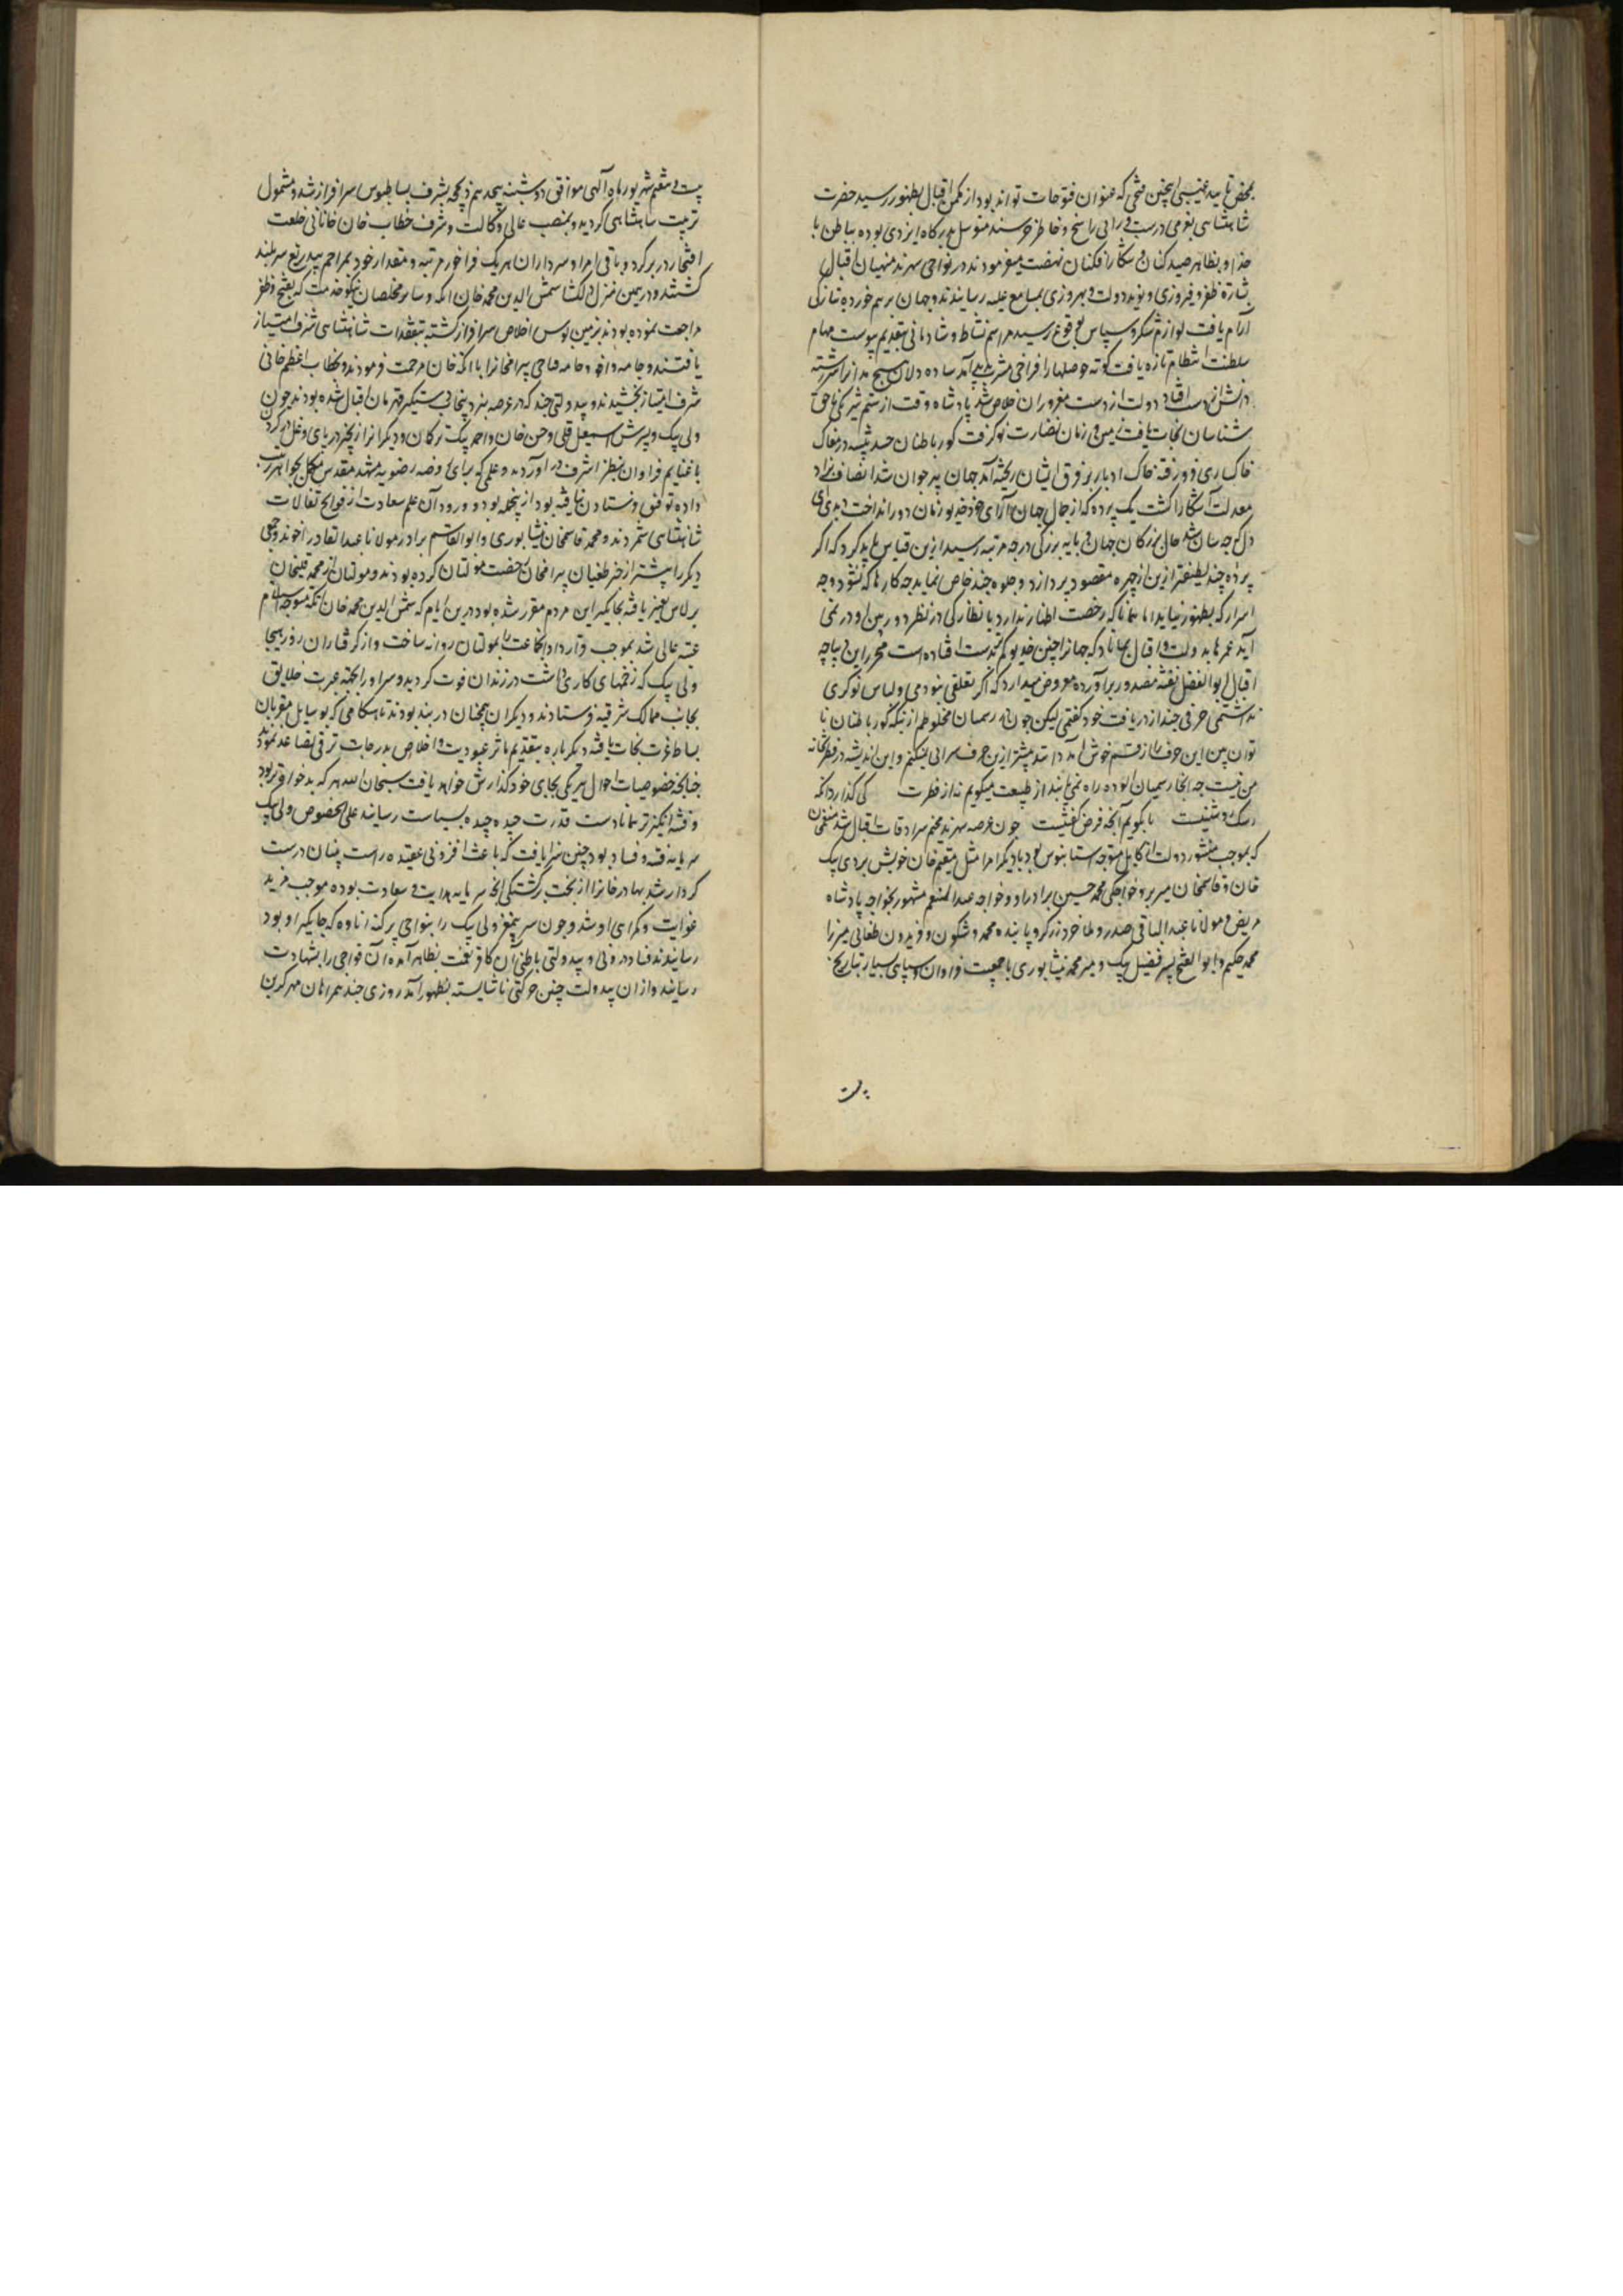 بمحض تایید غیبی اینچنین فتحی که عنوان فتوحات تواند بود از مکمن اقبال بظهور رسید حضرت
شاهنشاهی بعزمی درست و رائی راسخ و خاطر خرسند متوسل بدرکاه ایزدی بوده بباطن با
خدا و بظاهر صید کنان و شکار افکنان نهضت میفرمودند در نواحی سهرند منهیان اقبال
بشارة ظفر و فیروزی و نوید دولت و بهروزی بمسامع علیه رسانیدند و جهان برهم خورده بتازکی
آرام یافت لوازم شکر و سپاس بوقوع رسید مراسم نشاط و شادمانی بتقدیم پیوست مهام
سلطنت انتظام تازه یافت کوته حوصلها را فراخی مشرب پدید آمد ساده دلان هیچ مدان را سررشته
دانش از دست افتاد دولت از دست مغروران خلاص شد پادشاه وقت از ستم شرکی ناحق
شناسان نجات یافت زمین و زمان نضارت نو کرفت کور باطنان حسد پیشه در مغاک
خاکساری فرو رفته خاک ادبار بر فرق ایشان ریخته آمد جهان پیر جوان شد انصاف نژاد
معدلت آشکارا کشت یک پرده که از جمال جهان آرای خود خدیو زمان دور انداخت دیدی ای
دل که چه سان شد حال بزرکان جهان و پایه بزرکی در چه مرتبه رسید ازین قیاس باید کرد که اکر
پرده چند لطیفتر ازین از چهره مقصود بردازد و جلوه چند خاص نماید چه کارها که نشود و چه
اسرار که بظهور نیاید اما همانا که رخصت اظهار ندارد یا نظارکی در نظر دوربین او در نمی
آید عمرها بدولت و اقبال بماناد که جهانرا چنین خدیو کم بدست افتاده است محرر این دیباچه
اقبال ابوالفضل نفثه مصدور برآورده معروض میدارد که اکر تعلقی نبودمی و لباس نوکری
نداشتمی حرفی چند از دریافت خود کفتمی لیکن چون در رسمیان مخلوطم از بیم آنکه کور باطنان نا
توان بین این حرف را از قسم خوش آمد دانند بیشتر ازین حرف سرائی نمیکنم و این اندیشه در فطر تخانه
من نیست چه اینجا رسمیان آلوده راه نمی یابند از طبیعت میکویم نه از فطرت کی کذارد آنکه
رشک دوشنیست تا بکویم آنچه فرض کفتنیست چون عرصه سهرند مخیم سرادقات اقبال شد منعم خان
که بموجب منشور دولت از کابل متوجه آستانبوس بود با دیکر امرا مثل مقیم خان خویش تردی بیک
خان و قاسم خان میربر و خواجکی محمد حسین برادر او و خواجه عبدالمنعم مشهور بخواجه پادشاه
مریض و مولانا عبدالباقی صدر و ملا خرد زرکر و پاینده محمد و شکون و فریدون طغائی میرزا
محمد حکیم و ابوالفتح پسر فضیل بیک و میر محمد نیشابوری با جمعیت فراوان و سپاهی بسیار بتاریخ
بیست
بیست و هفتم شهریور ماه الهی موافق دوشنبه هیجدهم ذیحجه بشرف بساطبوس سرافراز شد و مشمول
تربیت شاهنشاهی کردید و بمنصب عالی وکالت و شرف خطاب خان خانانی خلعت
افتخار در بر کرد و باقی امرا و سرداران هر یک فراخور مرتبه و مقدار خود بمراحم بیدریغ سربلند
کشتند و در همین منزل دلکشا شمس الدین محمد خان اتکه و سایر مخلصان نیکو خدمت که بفتح و ظفر
مراجعت نموده بودند بزمین بوس اخلاص سرافراز کشته بتفقدات شاهنشاهی شرف امتیاز
یافتند و جامه و جامه قباچی بیرامخانرا با اتکه خان مرحمت فرمودند و بخطاب اعظم خانی
شرف امتیاز بخشیدند و بیدولتی چند که در عرصه نبرد پنجاب دستکیر قهرمان اقبال شده بودند چون
ولی بیک و پسرش اسمعیل قلی و حسن خان و احمد بیک ترکمان و دیکرانرا زنجیر در پای و غل در کردن
با غنایم فراوان بنظر اشرف در آوردند و علمی که برای روضه رضویه مشهد مقدس مکلل بجواهر ترتیب
داده توفیق فرستادن نیافته بود از آنجمله بود و ورود آن علم سعادت از فواتح تفالات
شاهنشاهی شمردند و محمد قاسم خان نیشابوری و ابوالقاسم برادر مولانا عبدالقادر آخوند و جمعی
دیکر را پیشتر از خبر طغیان بیرامخان رخصت مولتان کرده بودند و مولتان از محمد قلیخان
برلاس تغییر یافته بجاکیر این مردم مقرر شده بود درین ایام که شمس الدین محمد خان اتکه متوجه استلام
عتبه عالی شد بموجب قرارداد آن جماعت را بمولتان روانه ساخت و از کرفتاران روز هیجا
ولی بیک که زخمهای کاری داشت در زندان فوت کردید و سر او را بجهت عبرت خلایق
بجانب ممالک شرقیه فرستادند و دیکران همچنان در بند بودند تا هنکامی که بوسایل مقربان
بساط عزت نجات یافته دیکرباره بتقدیم مآثر عبودیت و اخلاص بدرجات ترقی تصاعد نمودند
چنانچه خصوصیات احوال هر یکی بجای خود کذارش خواهد یافت سبحان الله هر که بدخواه تر بود
و فتنه انکیز تر همانا دست قدرت چیده چیده بسیاست رسانید علی الخصوص ولی بیک
سرمایه فتنه و فساد بود چنین سزا یافت که باعث افزونی عقیده راست بینان درست
کردار شد بهادرخانرا از بخت برکشتکی آنچه سرمایه هدایت و سعادت بوده موجب مزید
غوایت و کمراهی او شد و چون سر بیمغز ولی بیک را بنواحی پرکنه اتاوه که جاکیر او بود
رسانیدند فساد درونی و بیدولتی باطنی آن کافر نعمت بظاهر آمده آن تواجی را بشهادت
رسانید و از آن بیدولت چنین حرکتی ناشایسته بظهور آمد روزی چند همراهان مهر کزین